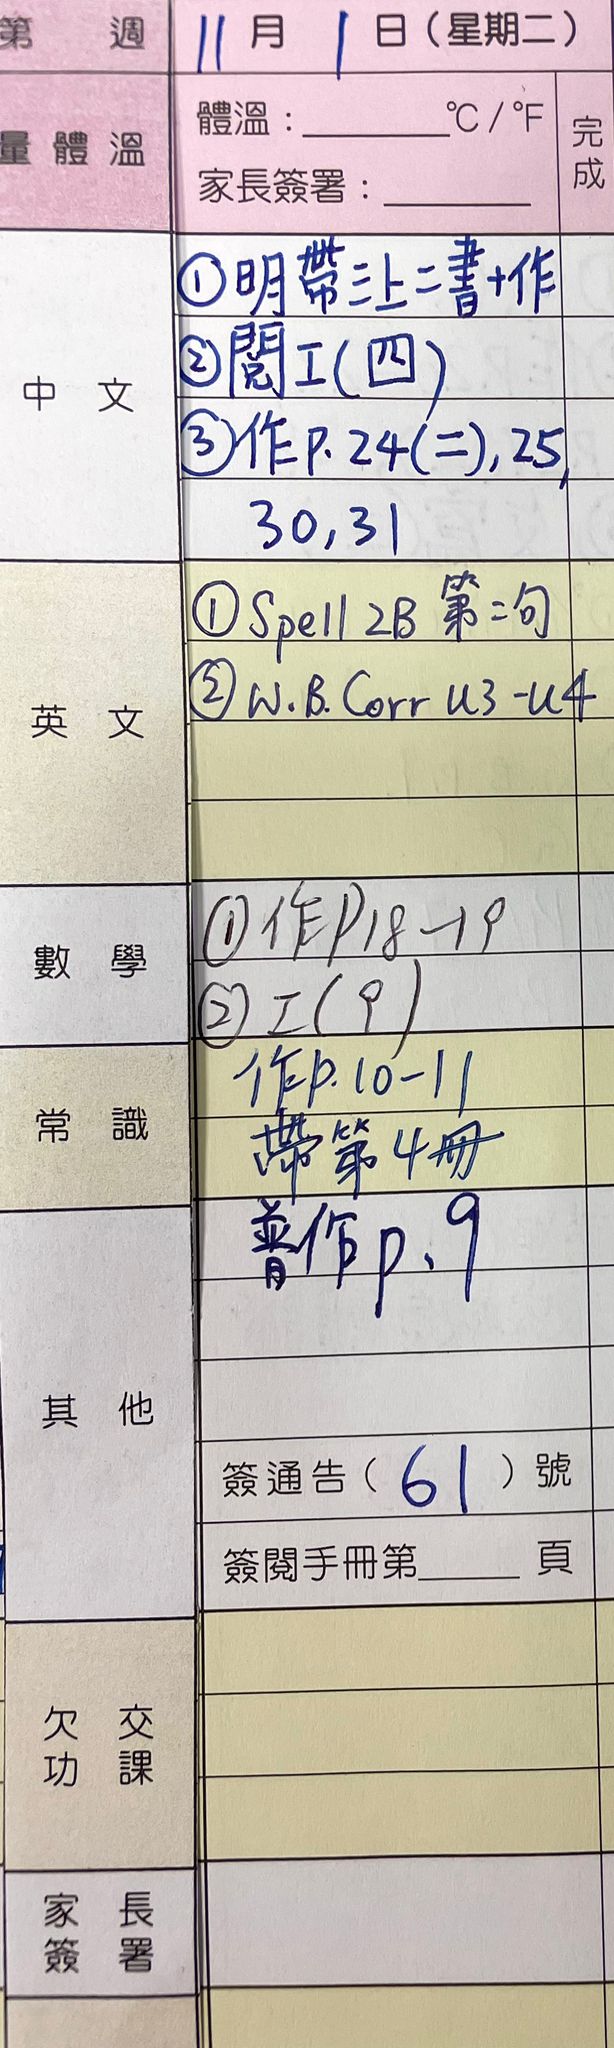 第 週 11 月 1 日(星期二)
量體溫 體溫:________℃/℉ 完成
家長簽署:________
中文
①明帶三上二書+作
②閱工(四)
③作P.24(二),25,
30,31
英文
①Spell 2B 第二句
②W.B. Corr U3-U4
數學
①作P18-19
②工(9)
常識
作p.10-11
帶第4冊
其他
普作p.9
簽通告(61)號
簽閱手冊第_____頁
欠交功課
家長簽署